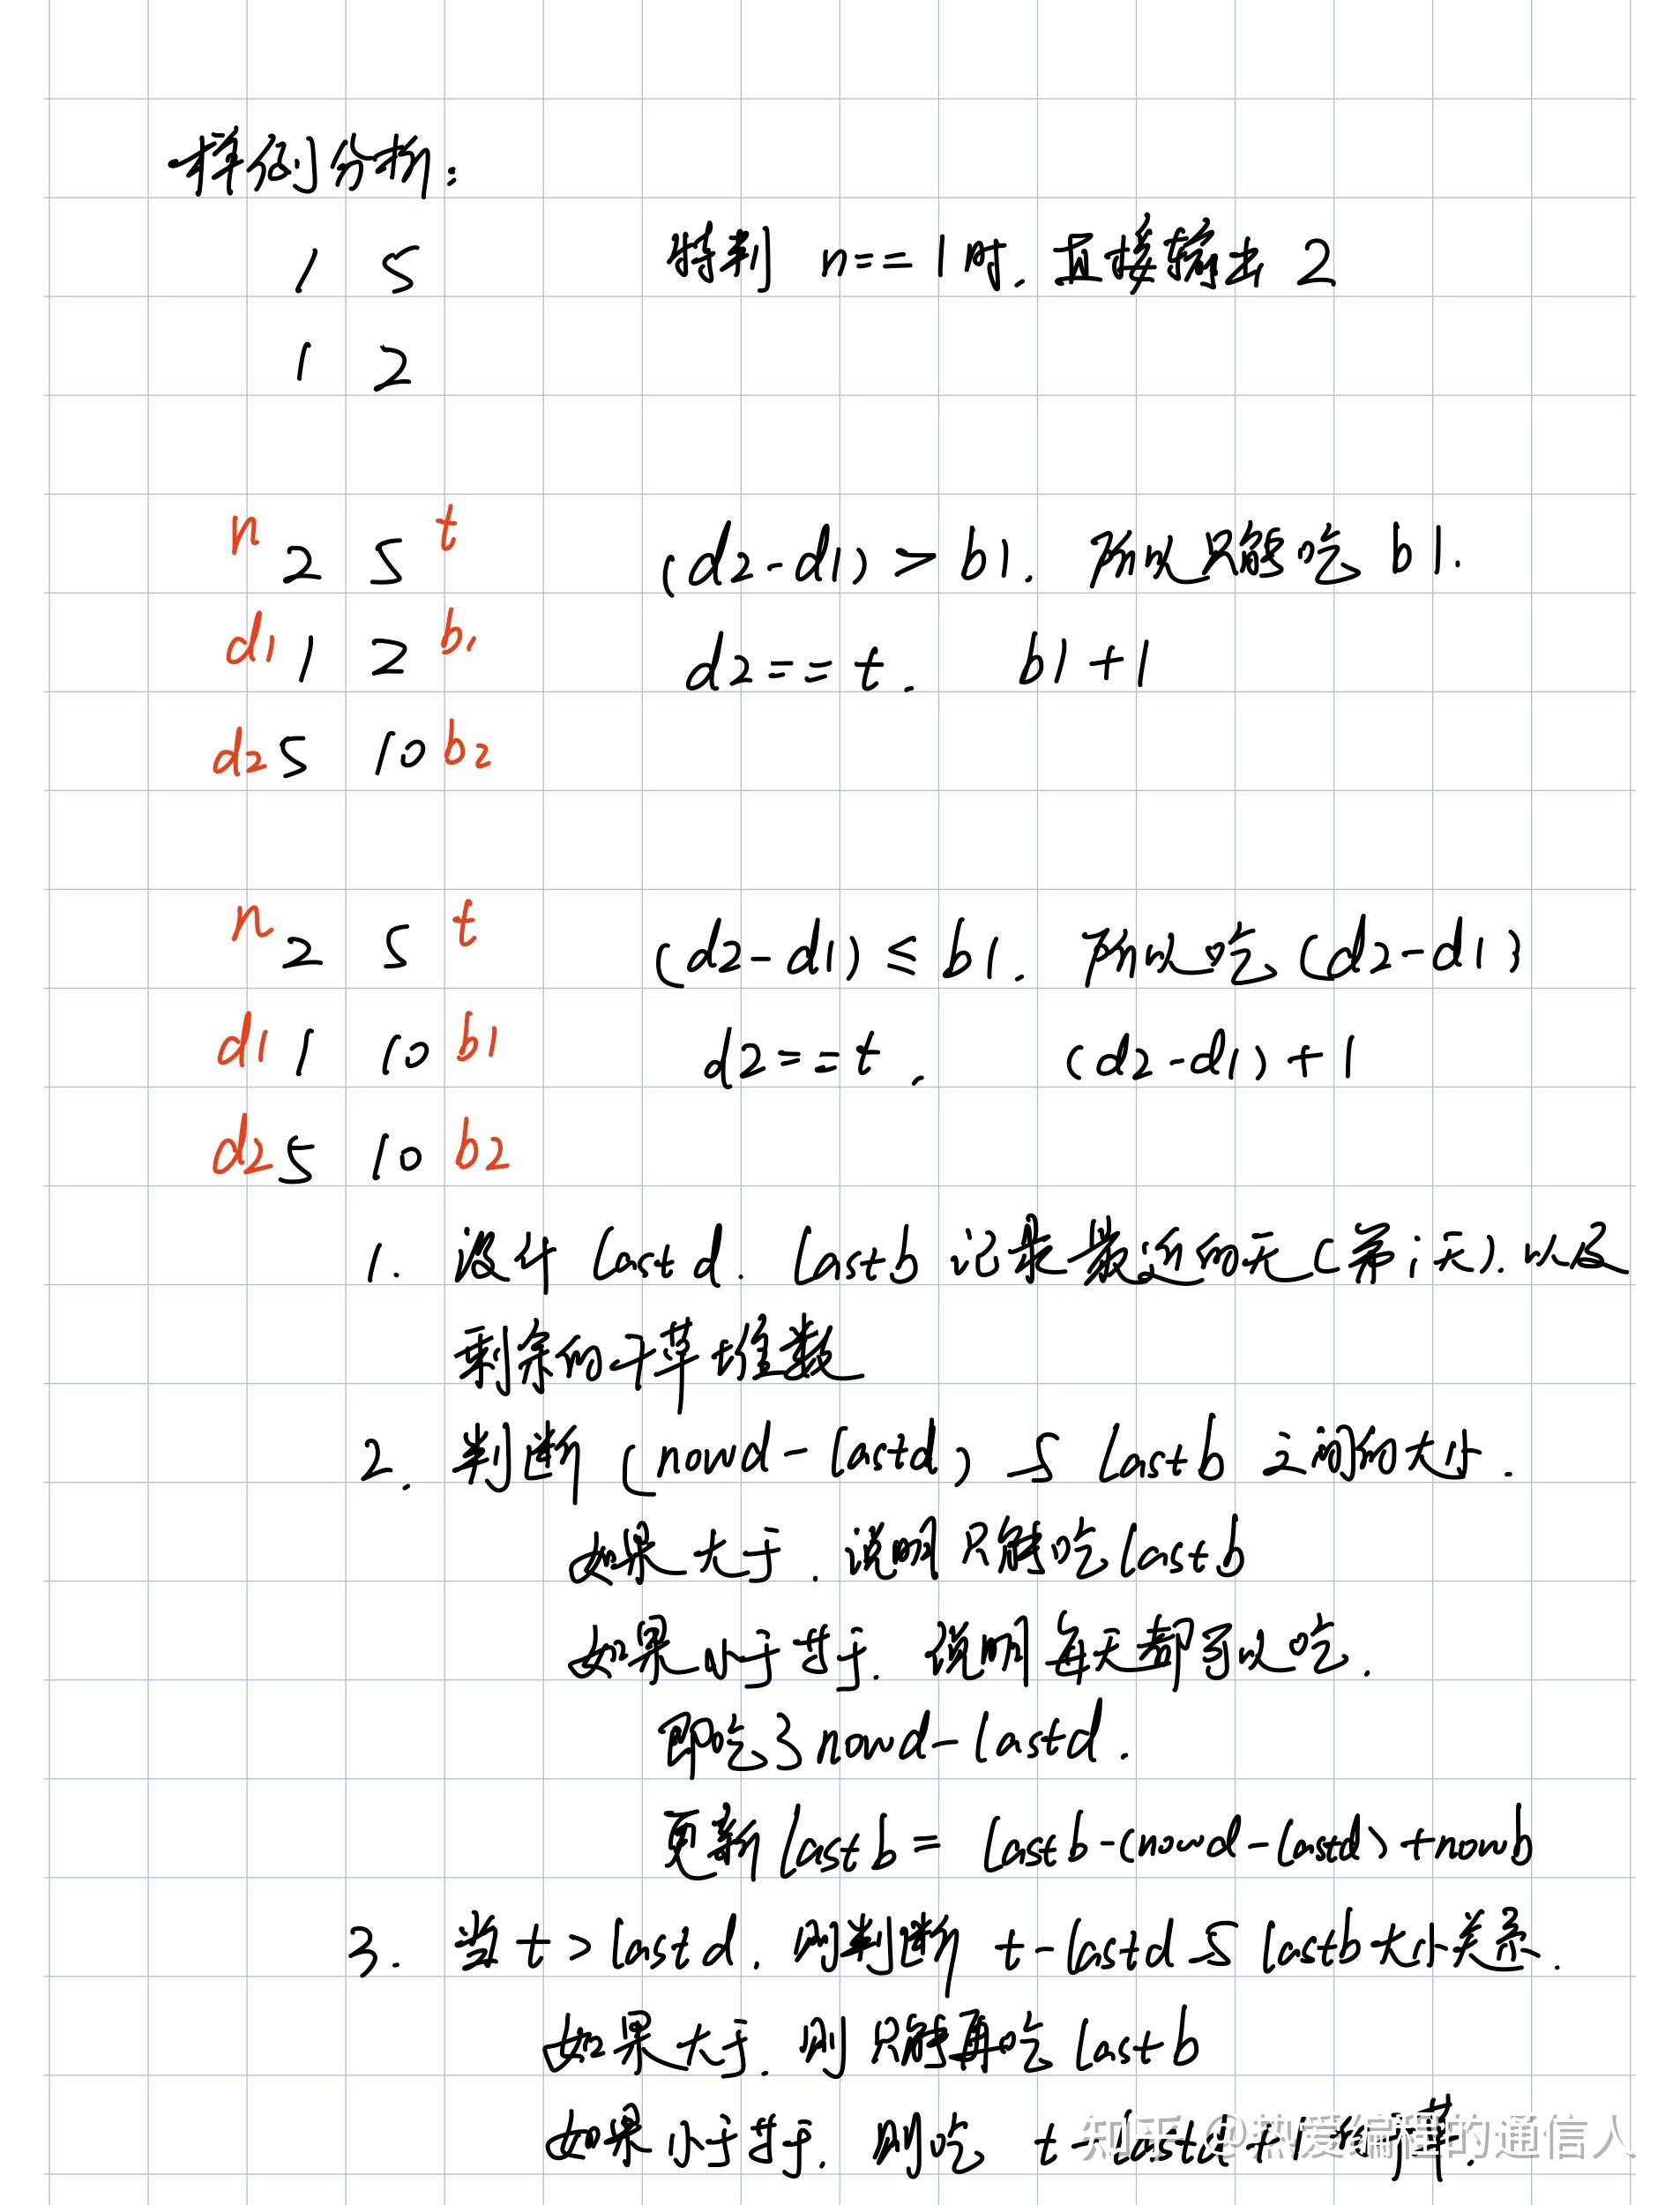 样例分析:
1 5 特判 n==1时. 直接输出 2
1 2
n 2 5 t (d2-d1) > b1. 所以只能吃 b1.
d1 1 2 b1 d2==t. b1+1
d2 5 10 b2
n 2 5 t (d2-d1) ≤ b1. 所以吃 (d2-d1)
d1 1 10 b1 d2==t. (d2-d1)+1
d2 5 10 b2
1. 设计 lastd. lastb 记录最近的天(第i天). 以及
剩余的干草堆数
2. 判断 (nowd-lastd) 与 lastb 之间的大小.
如果大于. 说明只能吃lastb
如果小于等于. 说明每天都可以吃.
即吃了nowd-lastd.
更新lastb = lastb-(nowd-lastd)+nowb
3. 当 t>lastd. 则判断 t-lastd与lastb大小关系.
如果大于. 则只能再吃 lastb
如果小于等于. 则吃 t-lastd+1 的干草.
知乎 @热爱编程的通信人